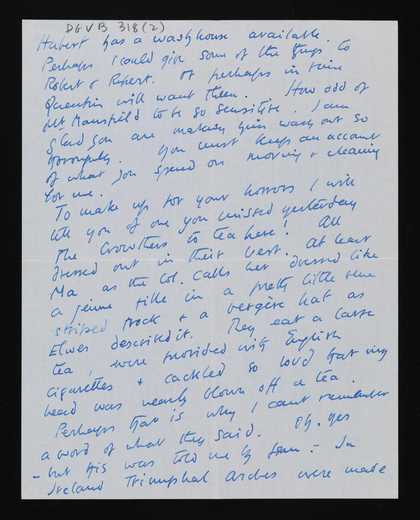 DGVB 318(2)
Hubert has a washhouse available.
Perhaps I could give some of the things to
Robert & Rupert. Or perhaps in time
Quentin will want them. How odd of
Mr Mansfield to be so sensitive. I am
glad you are making him wash out so
thoroughly. You must keep an account
of what you spend on moving & cleaning
for me.
To make up for your horrors I will
tell you of one you missed yesterday
The Crowthers to tea here! All
dressed out in their best. At least
Ma as the Col. calls her dressed like
a jeune fille in a pretty little blue
striped frock & a bergère hat as
Elwes described it. They eat a large
tea, were provided with English
cigarettes & cackled so loud that my
head was nearly blown off a tea.
Perhaps that is why I cant remember
a word of what they said. Oh. yes
- but this was told me by :- In
Ireland Triumphal arches were made